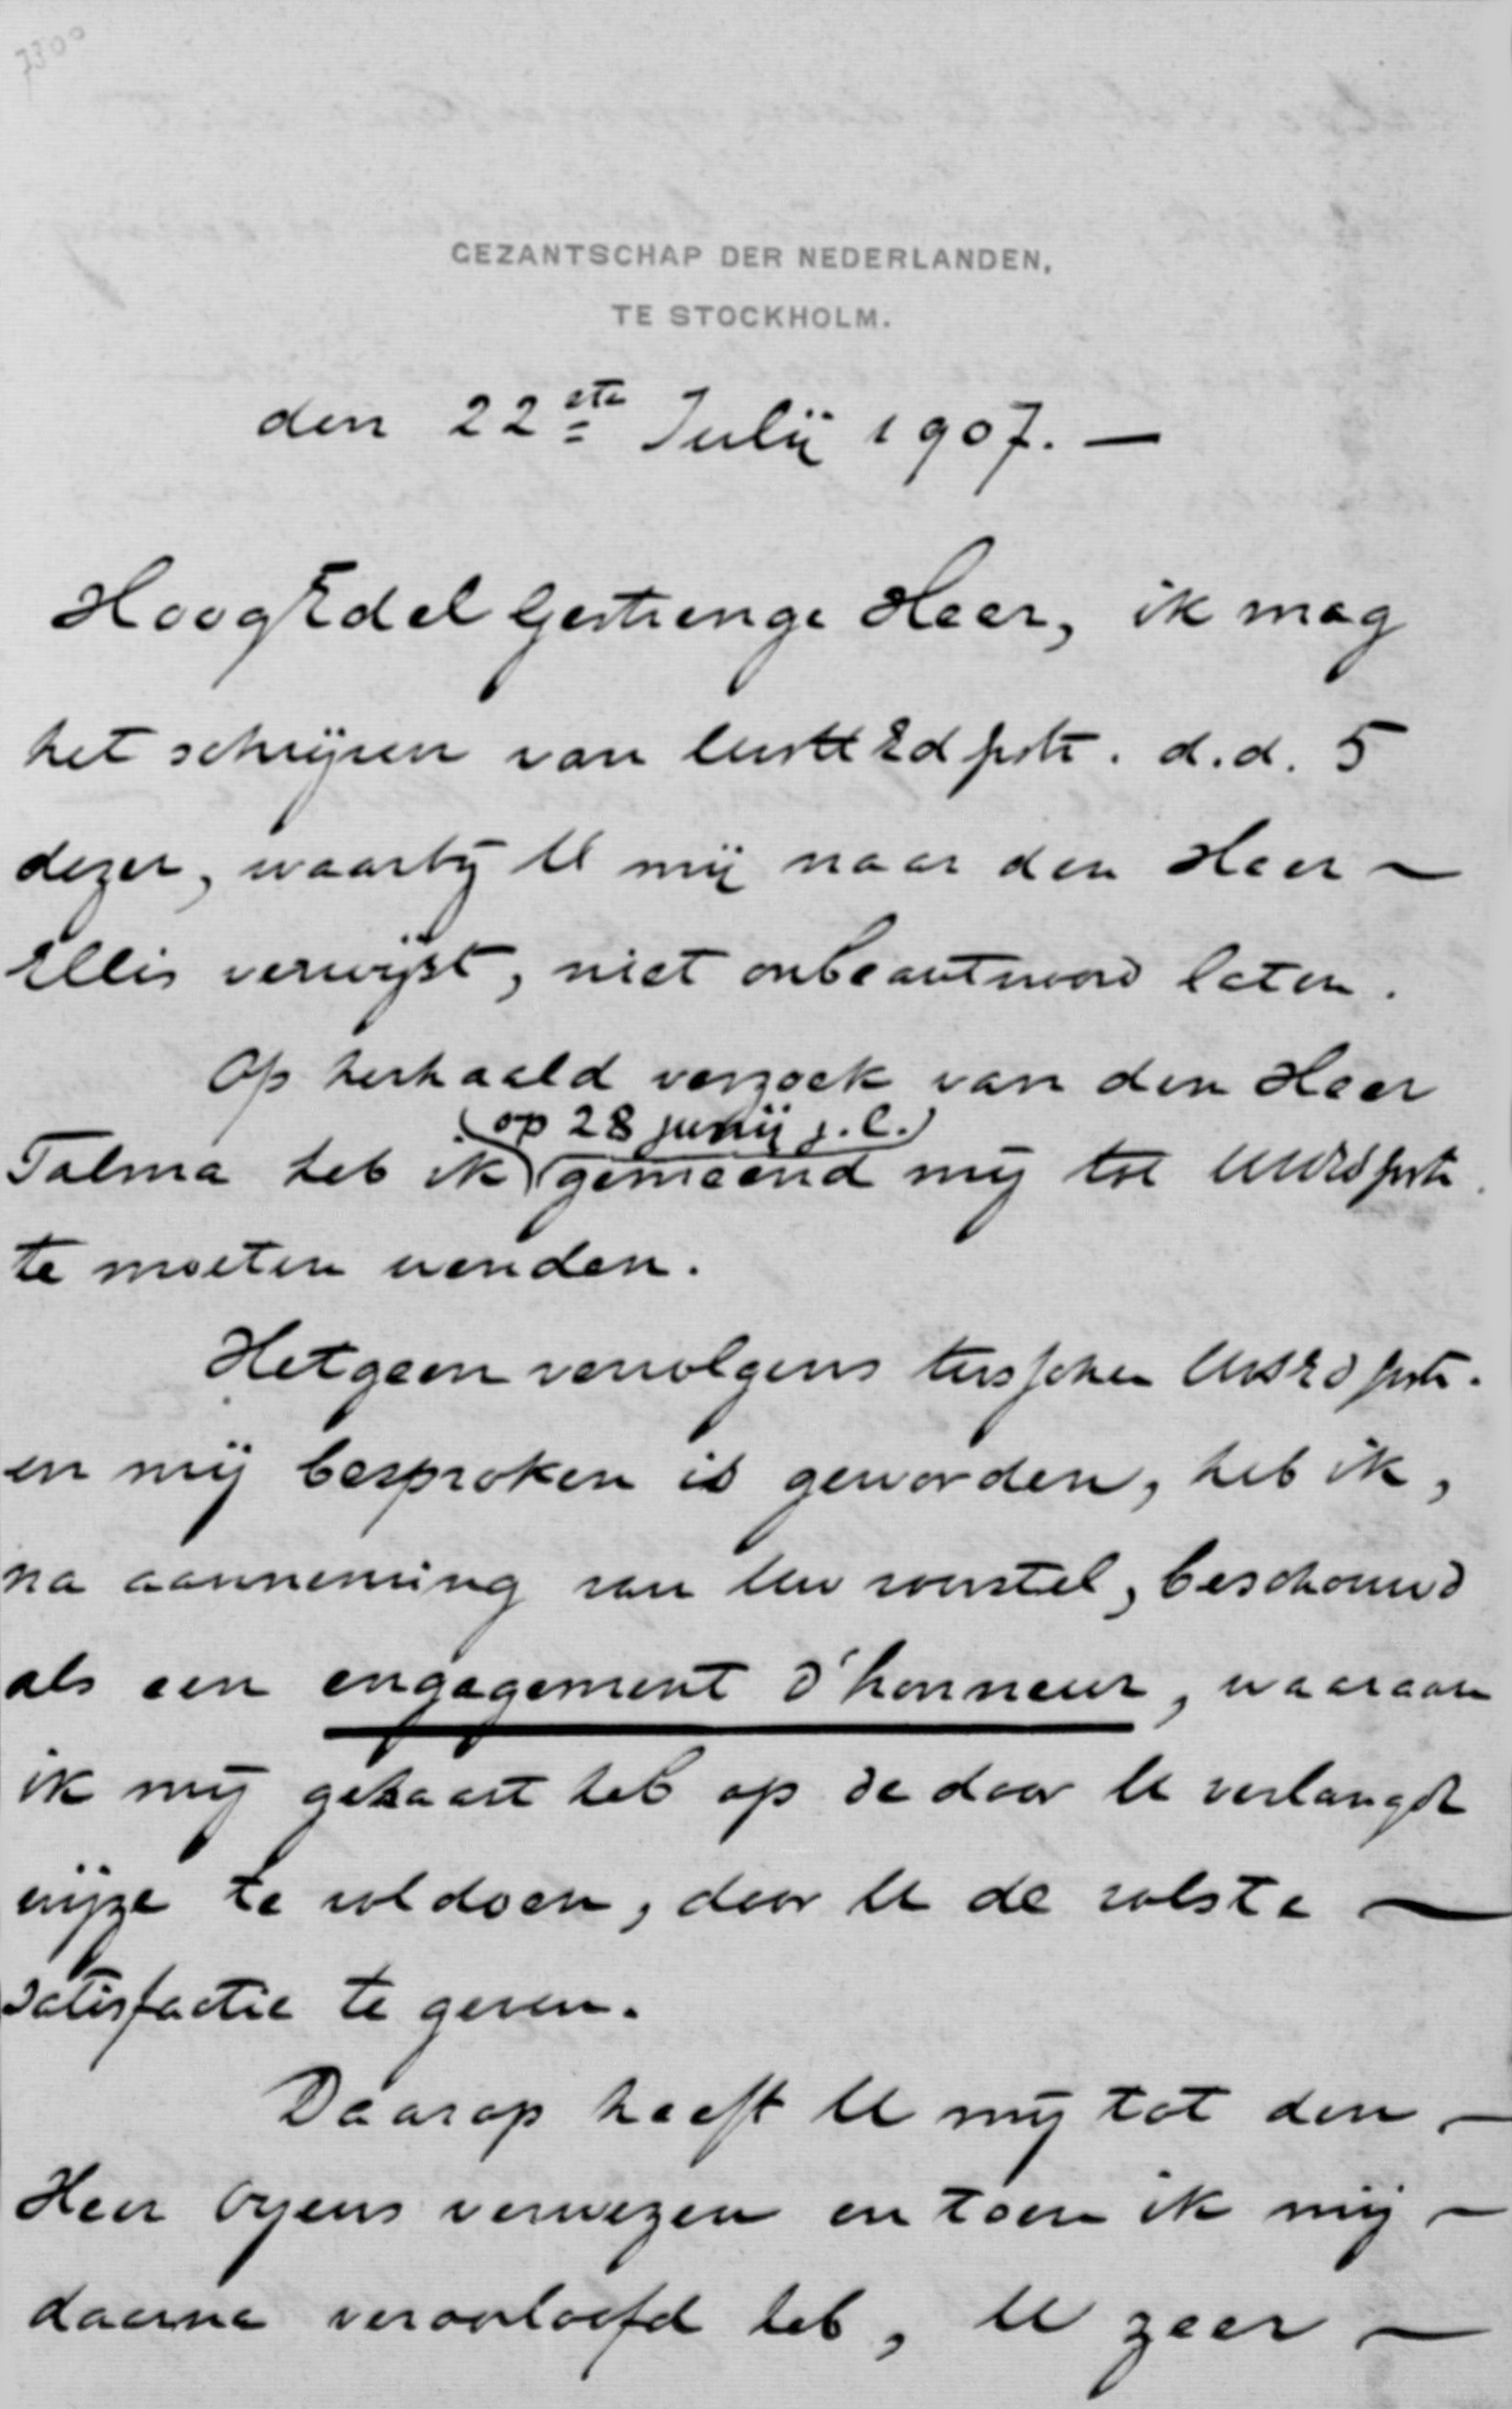 7300
GEZANTSCHAP DER NEDERLANDEN,
TE STOCKHOLM.
den 22ste Julij 1907. —
HoogEdelGestrenge Heer, ik mag
het schrijven van UwHEdGestr. d.d. 5
dezer, waarbij U mij naar den Heer —
Ellis verwijst, niet onbeantwoord laten.
Op herhaald verzoek van den Heer
(op 28 junij j.l.)
Talma heb ik gemeend mij tot UwHEdGestr.
te moeten wenden.
Hetgeen vervolgens tusschen UwHEdGestr.
en mij besproken is geworden, heb ik,
na aanneming van Uw voorstel, beschouwd
als een engagement d'honneur, waaraan
ik mij gehaast heb op de door U verlangde
wijze te voldoen, door U de volste —
satisfactie te geven.
Daarop heeft U mij tot den —
Heer Oyens verwezen en toen ik mij —
daarna veroorloofd heb, U zeer —